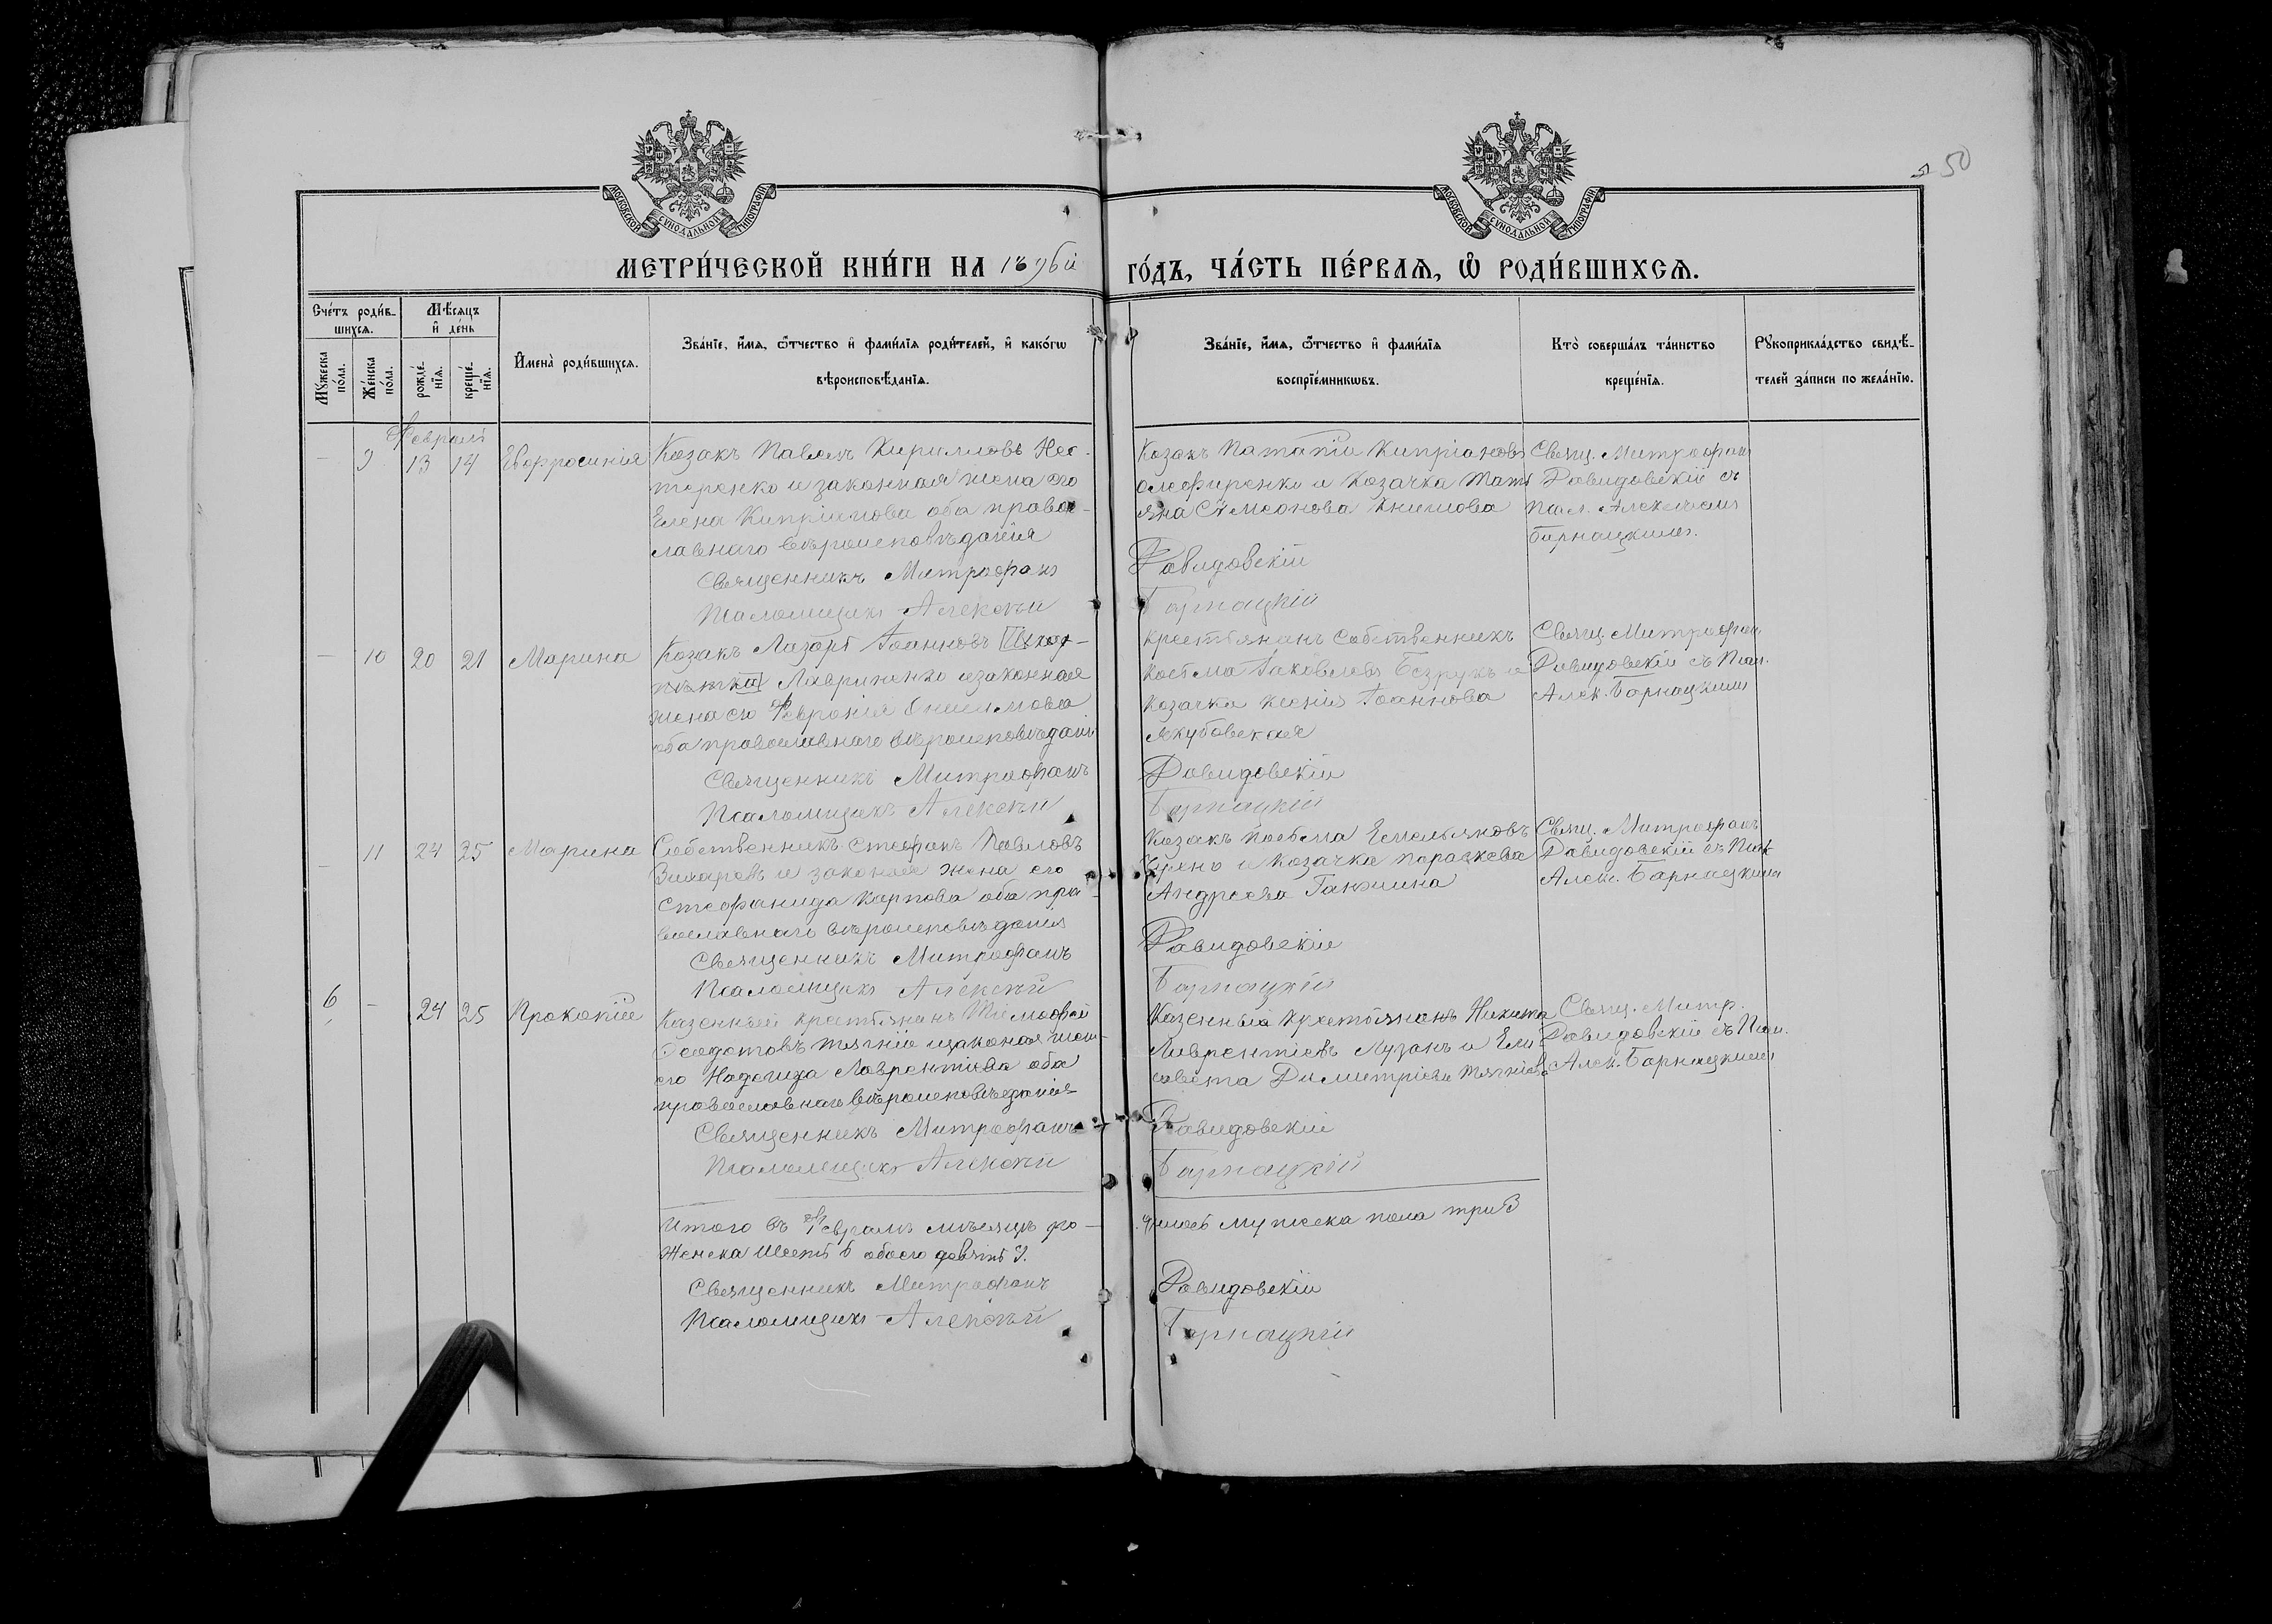 50
МОСКОВСКОЙ СѴНОДАЛЬНОЙ ТИПОГРАФІИ
МОСКОВСКОЙ СѴНОДАЛЬНОЙ ТИПОГРАФІИ
МЕТРИ́ЧЕСКОЙ КНИ́ГИ НА 1896й ГО́ДЪ, ЧА́СТЬ ПЕ́РВАЯ, Ѡ РОДИ́ВШИХСЯ.
Сче́тъ роди́в-
шихся.
Мѣ́сяцъ
и҆ де́нь
Му́жеска по́ла.
Же́нска по́ла.
рожде́-
нїя.
креще́-
нїя.
И҆мена̀ роди́вшихся.
Зва́нїе, и҆́мя, ѻ҆́тчество и҆ фами́лїя роди́телей, и҆ како́гѡ
вѣроисповѣ́данїя.
Зва́нїе, и҆́мя, ѻ҆́тчество и҆ фами́лїя
воспрїе́мникѡвъ.
Кто̀ соверша́лъ та́инство
креще́нїя.
Рꙋкоприкла́дство свидѣ́-
телей за́писи по жела́нїю.
Февраль
- 9 13 14 Евфросинія
Козакъ Павелъ Кирилловъ Нес-
теренко и законная жена его
Елена Кипріянова оба правос-
лавнаго вѣроисповѣданія
Священникъ Митрофанъ
Псаломщикъ Алексѣй
Козакъ Кипріановъ
и Козачка Тать
яна Сѵмеонова
Давидовскій
Барнацкій
Свящ. Митрофанъ
Давидовскій съ
Алексѣемъ
Барнацкимъ.
- 10 20 21 Марина
Козакъ Лазарь Іоанновъ
Лавриненко и законная
жена его Февронія Онисимова
оба православнаго вѣроисповѣдані
Священникъ Митрофанъ
Псаломщикъ Алексѣй
Крестьянинъ собственникъ
Косьма Іаковлевъ Безрукъ и
Козачка Ксенія Іоаннова
Якубовская
Давидовскій
Барнацкій
Свящ. Митрофан
Давидовскій съ Псал.
Алек. Барнацкимъ
- 11 24 25 Марина
Собственникъ Стефанъ Павловъ
и законая жена его
Стефанида Карпова оба пра-
вославнаго вѣроисповѣданія
Священникъ Митрофанъ
Псаломщикъ Алексѣй
Козакъ Косьма Емельяновъ
и Козачка Параскева
Андреева Ганжина
Давидовскій
Барнацкій
Свящ. Митрофанъ
Давидовскій съ Псал
Алек. Барнацкимъ
6 - 24 25 Прокопій
Казенный крестьянинъ Тимофей
Ѳеодотовъ Тягній и законая жена
его Надежда Лаврентіева оба
православнаго вѣроисповѣданія
Священникъ Митрофанъ
Псаломщикъ Алексѣй
Казенный Крестьянинъ Никита
Лаврентіевъ Музанъ и Ели-
савета Димитріева Тягніева
Давидовскій
Барнацкій
Свящ. Митр.
Давидовскій съ Псал.
Алек. Барнацкимъ
Итого въ Февралѣ мѣсяцѣ ро-
дилось мужеска пола три 3
Женска шесть 6 обоего девять 9.
Священникъ Митрофанъ Давидовскій
Псаломщикъ Алексѣй Барнацкій